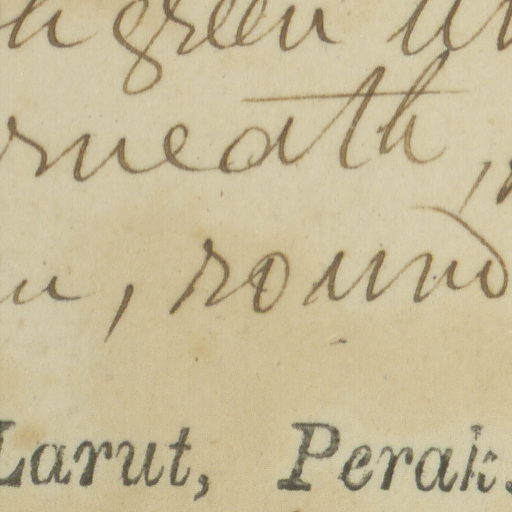 green
neath,
, round
Larut, Perak.